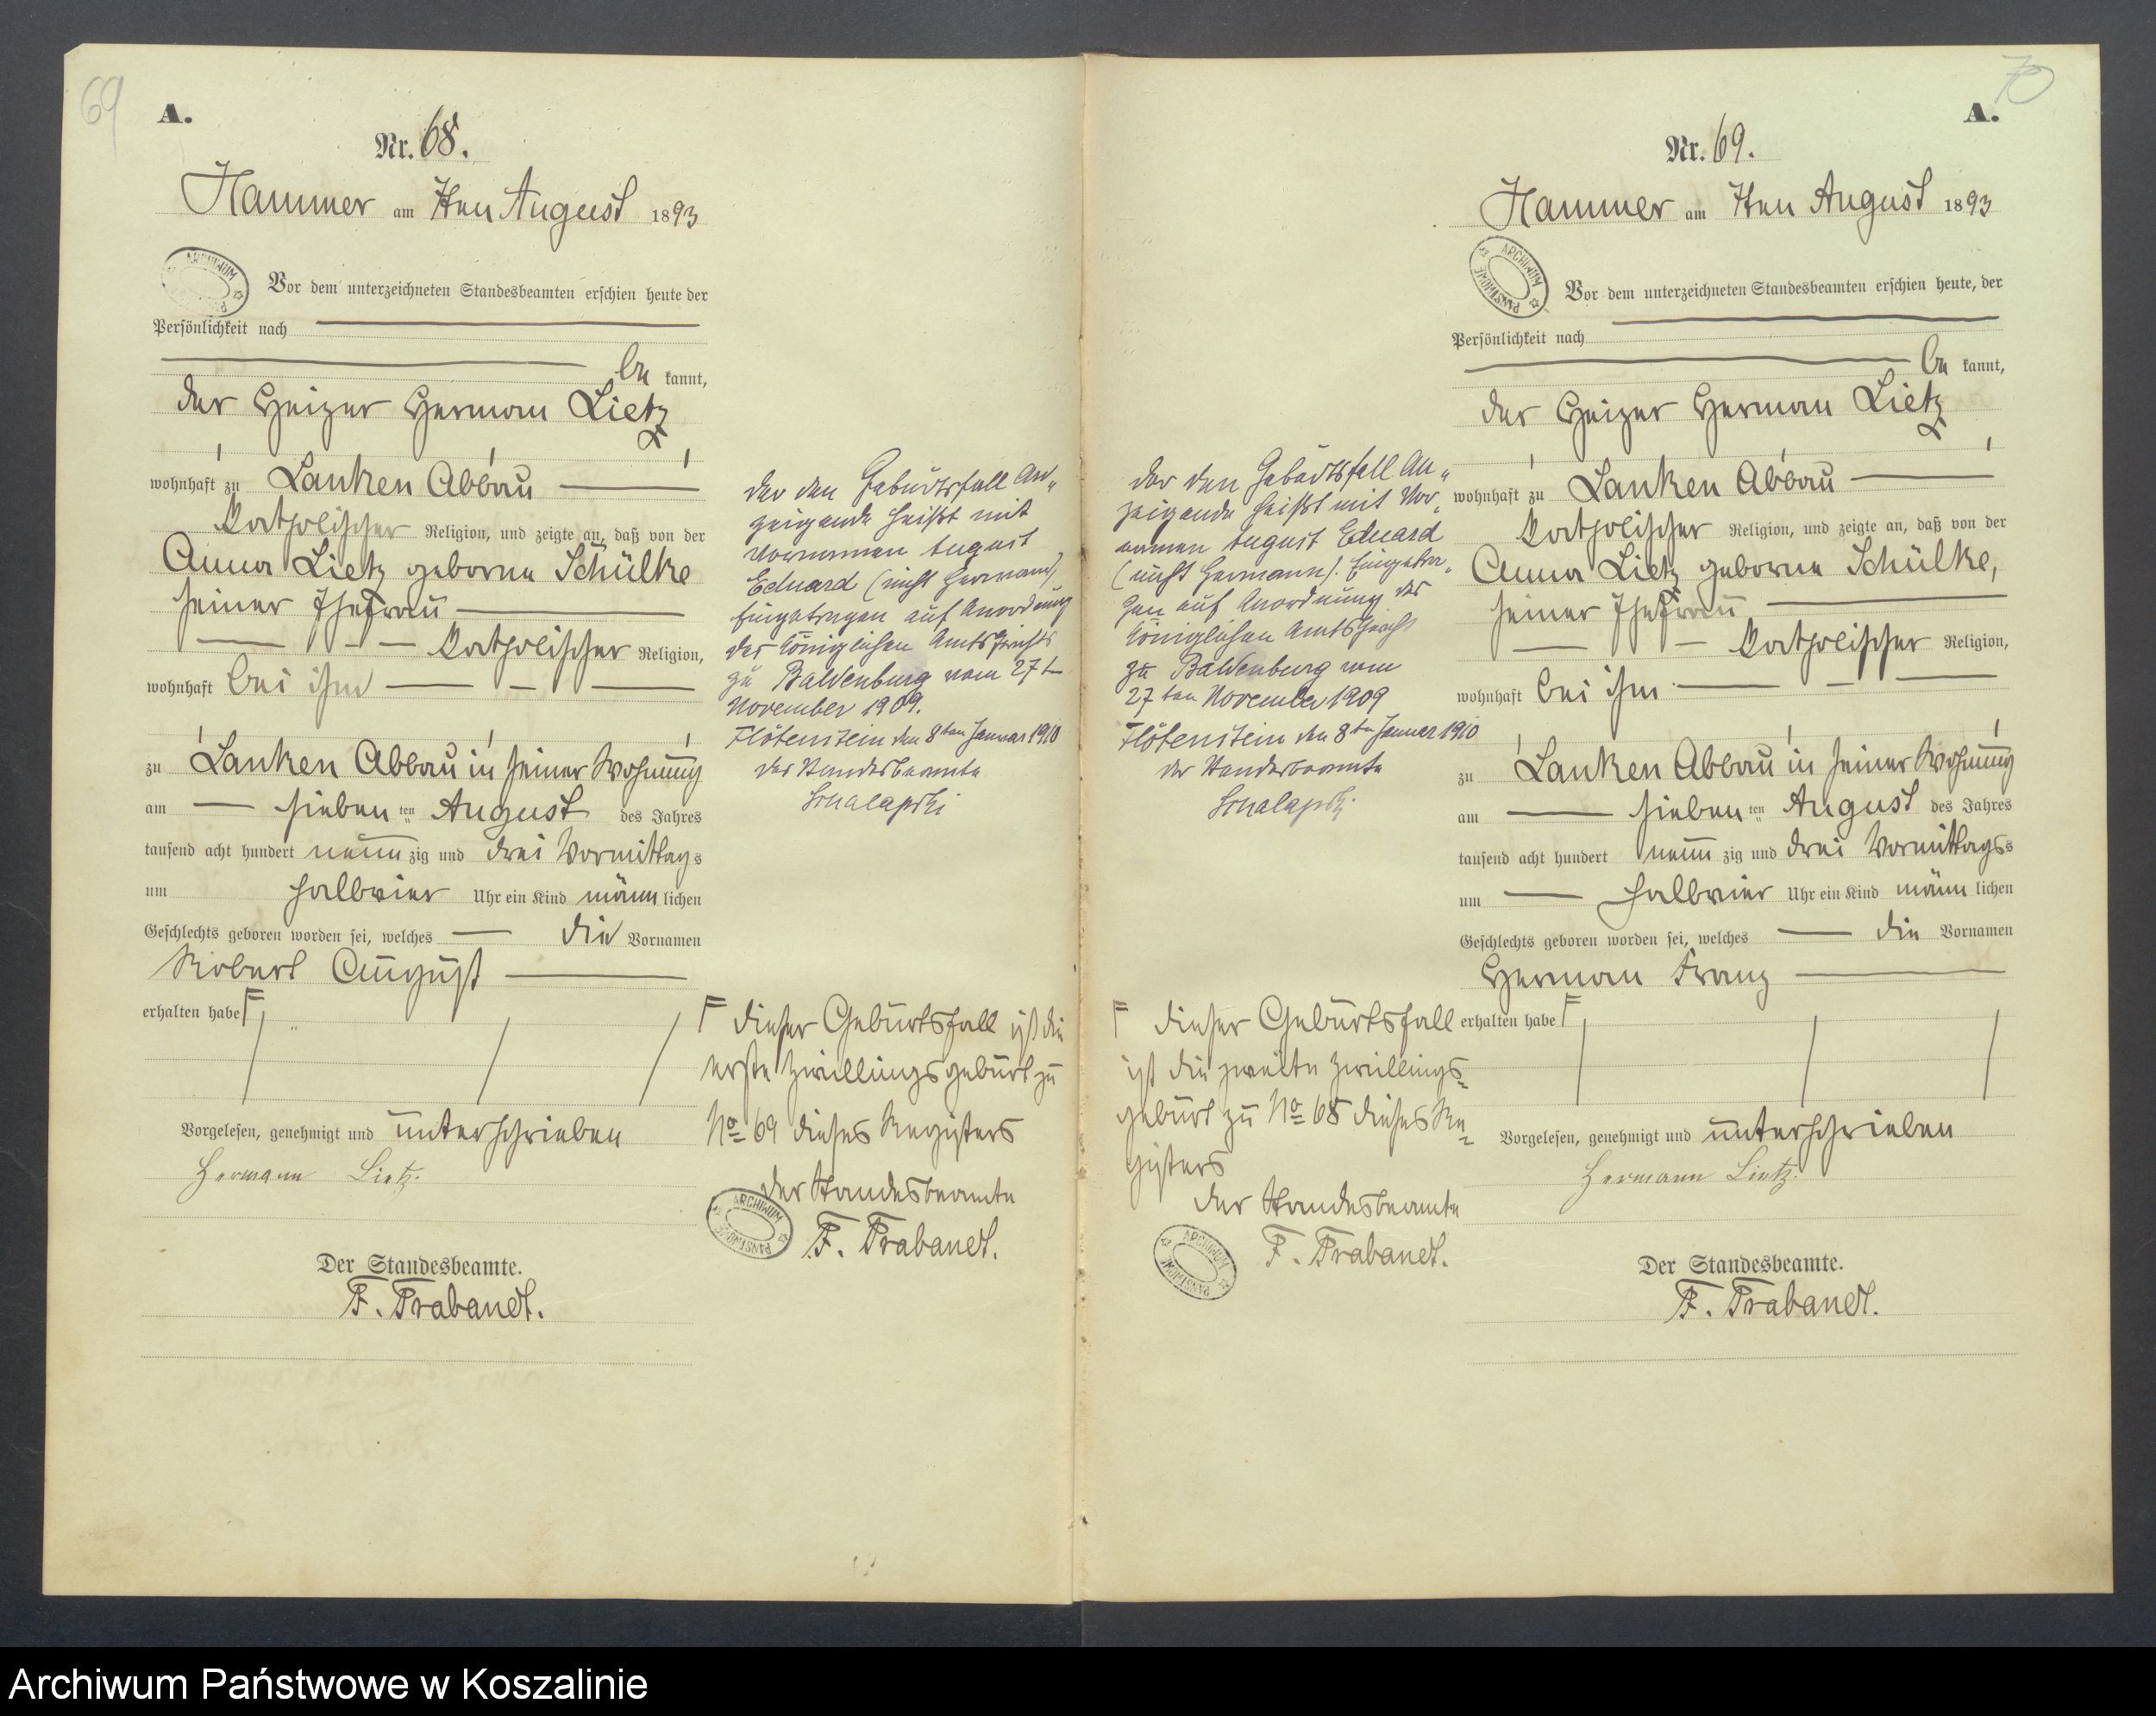 69
A.
Nr. 68.
Hammer am 7ten August 1893
ARCHIWUM
Vor dem unterzeichneten Standesbeamten erschien heute der
Persönlichkeit nach
be kannt,
der Heizer Herman Lietz
wohnhaft zu Lanken Abbau
katholischer Religion, und zeigte an, daß von der
Anna Lietz geborne Schülke
seiner Ehefrau
katholischer Religion,
wohnhaft bei ihm
zu Lanken Abbau in seiner Wohnung
am sieben ten August des Jahres
tausend acht hundert neun zig und drei Vormittag s
um halbvier Uhr ein Kind männ lichen
Geschlechts geboren worden sei, welches die Vornamen
Robert August
erhalten habe F
Vorgelesen, genehmigt und unterschrieben
Hermann Lietz.
Der Standesbeamte.
F. Trabandt.
der den Geburtsfall An„
zeigende heißt mit
Vornamen August
Eduard (nicht Hermann)
Eingetragen auf Anordnung
des königlichen Amtsgerichts
zu Baldenburg vom 27t
November 1909.
Flötenstein den 8ten Januar 1910
der Standesbeamte
F dieser Geburtsfall ist die
erste Zwillingsgeburt zu
No 69 dieses Registers
der Standesbeamte
ARCHIWUM PAŃSTWOWE
F. Trabandt.
70
A.
Nr. 69.
Hammer am 7ten August 1893
ARCHIWUM PAŃSTWOWE
Vor dem unterzeichneten Standesbeamten erschien heute, der
Persönlichkeit nach
be kannt,
der Heizer Herman Lietz
wohnhaft zu Lanken Abbau
katholischer Religion, und zeigte an, daß von der
Anna Lietz geborne Schülke,
seiner Ehefrau
katholischer Religion,
wohnhaft bei ihm
zu Lanken Abbau in seiner Wohnung
am sieben ten August des Jahres
tausend acht hundert neun zig und drei Vormittags s
um halbvier Uhr ein Kind männ lichen
Geschlechts geboren worden sei, welches die Vornamen
Herman Franz
erhalten habe F
Vorgelesen, genehmigt und unterschrieben
Hermann Lietz.
Der Standesbeamte.
F. Trabandt.
der den Geburtsfall An„
zeigende heißt mit Vor„
namen August Eduard
(nicht Hermann). Eingetra„
gen auf Anordnung des
königlichen Amtsgerichts
zu Baldenburg vom
27ten November 1909
Flötenstein den 8ten Januar 1910
der Standesbeamte
F dieser Geburtsfall
ist die zweite Zwillings=
geburt zu No 68 dieses Re=
gisters
der Standesbeamte
ARCHIWUM PAŃSTWOWE
F. Trabandt.
Archiwum Państwowe w Koszalinie